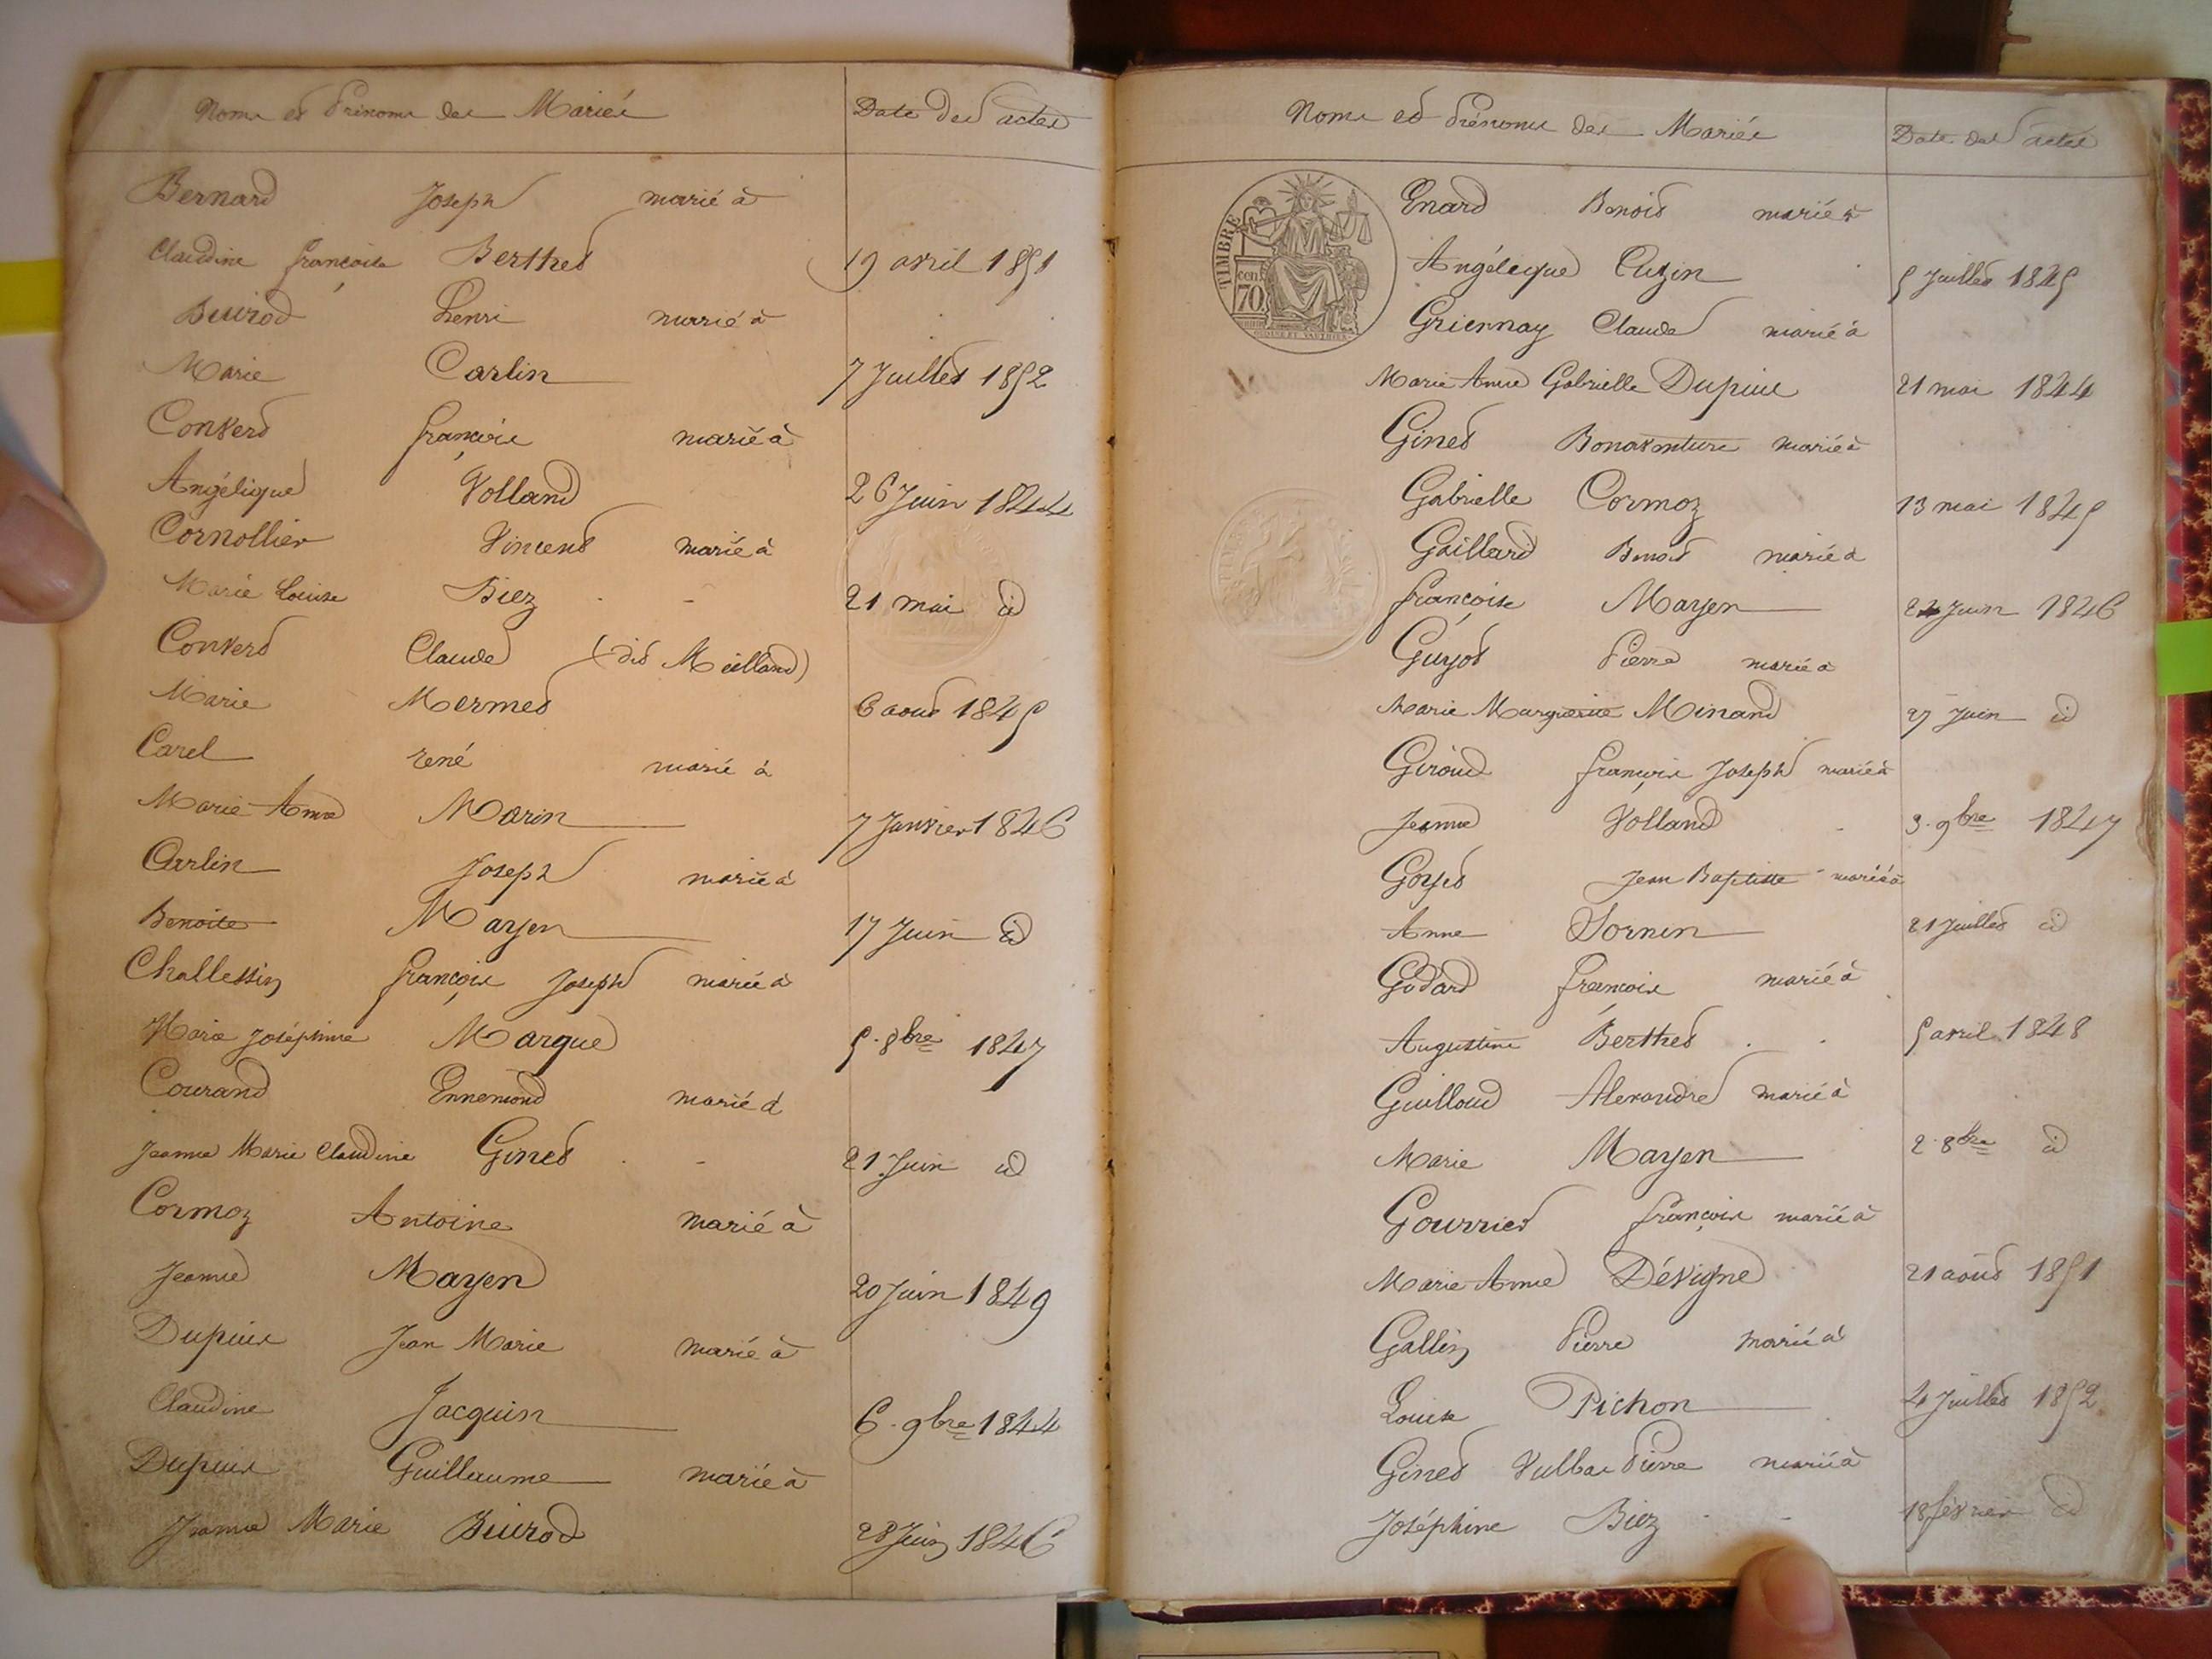 Noms et Prénoms des Mariés Date des actes
Bernard Joseph marié à
Claudine françoise Berthet 19 avril 1851
Buirod henri marié à
Marie Carlin 7 Juillet 1852
Convert françois marié à
Angélique Volland 26 Juin 1844
Cornollier Vincent marié à
Marie Louise Biez 21 mai id
Convert Claude (dit Meilland)
Marie Mermet 6 aout 1845
Carel rené marié à
Marie Anne Marin 7 Janvier 1846
Carlin Joseph marié à
Benoite Mayen 17 Juin id
Challessin françois Joseph marié à
Marie Joséphine Margue 5. 8bre 1847
Courand Ennemond marié à
Jeanne Marie Claudine Ginet 21 Juin id
Cormoz Antoine marié à
Jeanne Mayen 20 Juin 1849
Dupuis Jean Marie marié à
Claudine Jacquin 6. 9bre 1844
Dupuis Guillaume marié à
Jeanne Marie Buirod 28 Juin 1846
Noms et Prénoms des Mariés Date des actes
TIMBRE
70
cent
Enard Benoit marié à
Angélique Cuzin 5 Juillet 1845
Griennay Claude marié à
Marie Anne Gabrielle Dupuis 21 mai 1844
Ginet Bonaventure marié à
Gabrielle Cormoz 13 mai 1845
Gaillard Benoit marié à
françoise Mayen 24 Juin 1846
Guyot Pierre marié à
Marie Marguerite Minand 27 Juin id
Giroud françois Joseph marié à
Jeanne Volland 3. 9bre 1847
Goyet Jean Baptiste marié à
Anne Sornin 21 Juillet id
Godard françois marié à
Augustine Berthet 5 avril 1848
Guilloud Alexandre marié à
Marie Mayen 2. 8bre id
Gourriet françois marié à
Marie Anne Dévigne 21 août 1851
Gallin Pierre marié à
Louise Pichon 4 Juillet 1852
Ginet Vulbas Pierre marié à
Joséphine Biez 18 février id